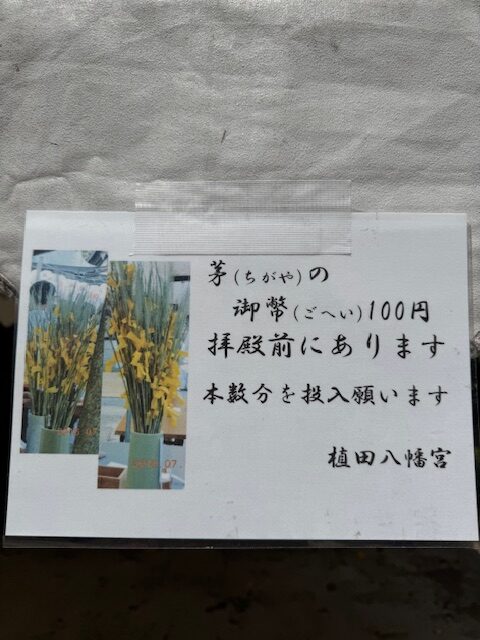 茅(ちがや)の
御幣(ごへい)100円
拝殿前にあります
本数分を投入願います
植田八幡宮